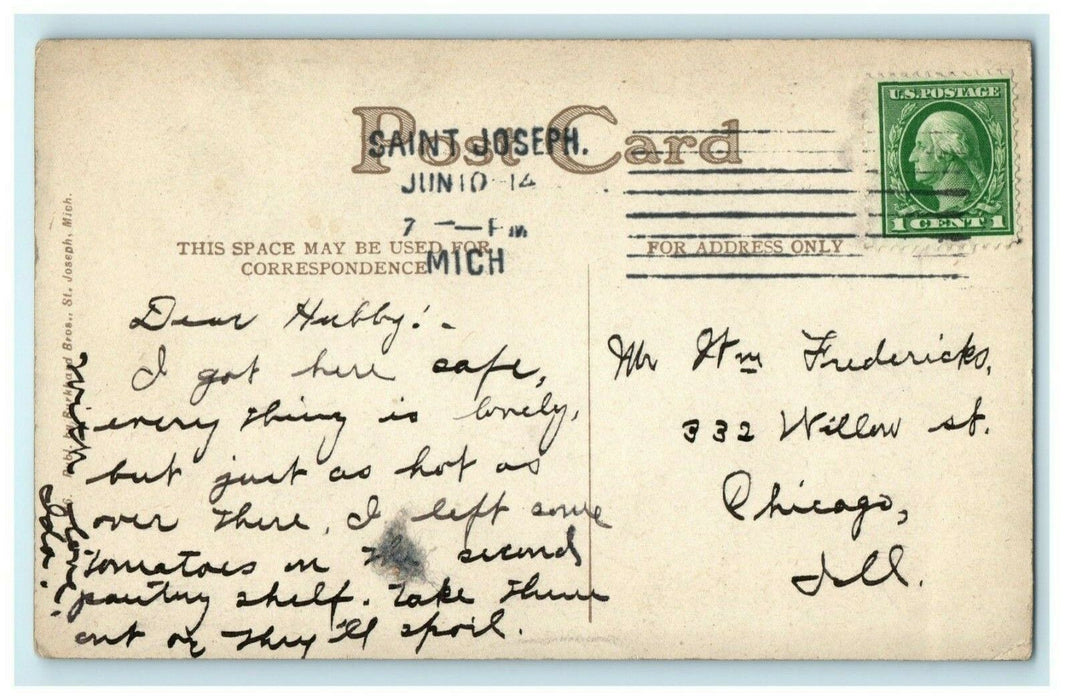 Post Card
SAINT JOSEPH.
JUN 10 14
7 — PM
MICH
U.S. POSTAGE
1 CENT 1
THIS SPACE MAY BE USED FOR
CORRESPONDENCE
FOR ADDRESS ONLY
Dear Hubby:-
I got here safe,
every thing is lovely,
but just as hot as
over there. I left some
tomatoes on the second
pantry shelf. Take them
out or they'll spoil.
With
Love.
Ida.
Mr Wm Fredericks,
332 Willow st.
Chicago,
Ill.
Bros., St. Joseph, Mich.